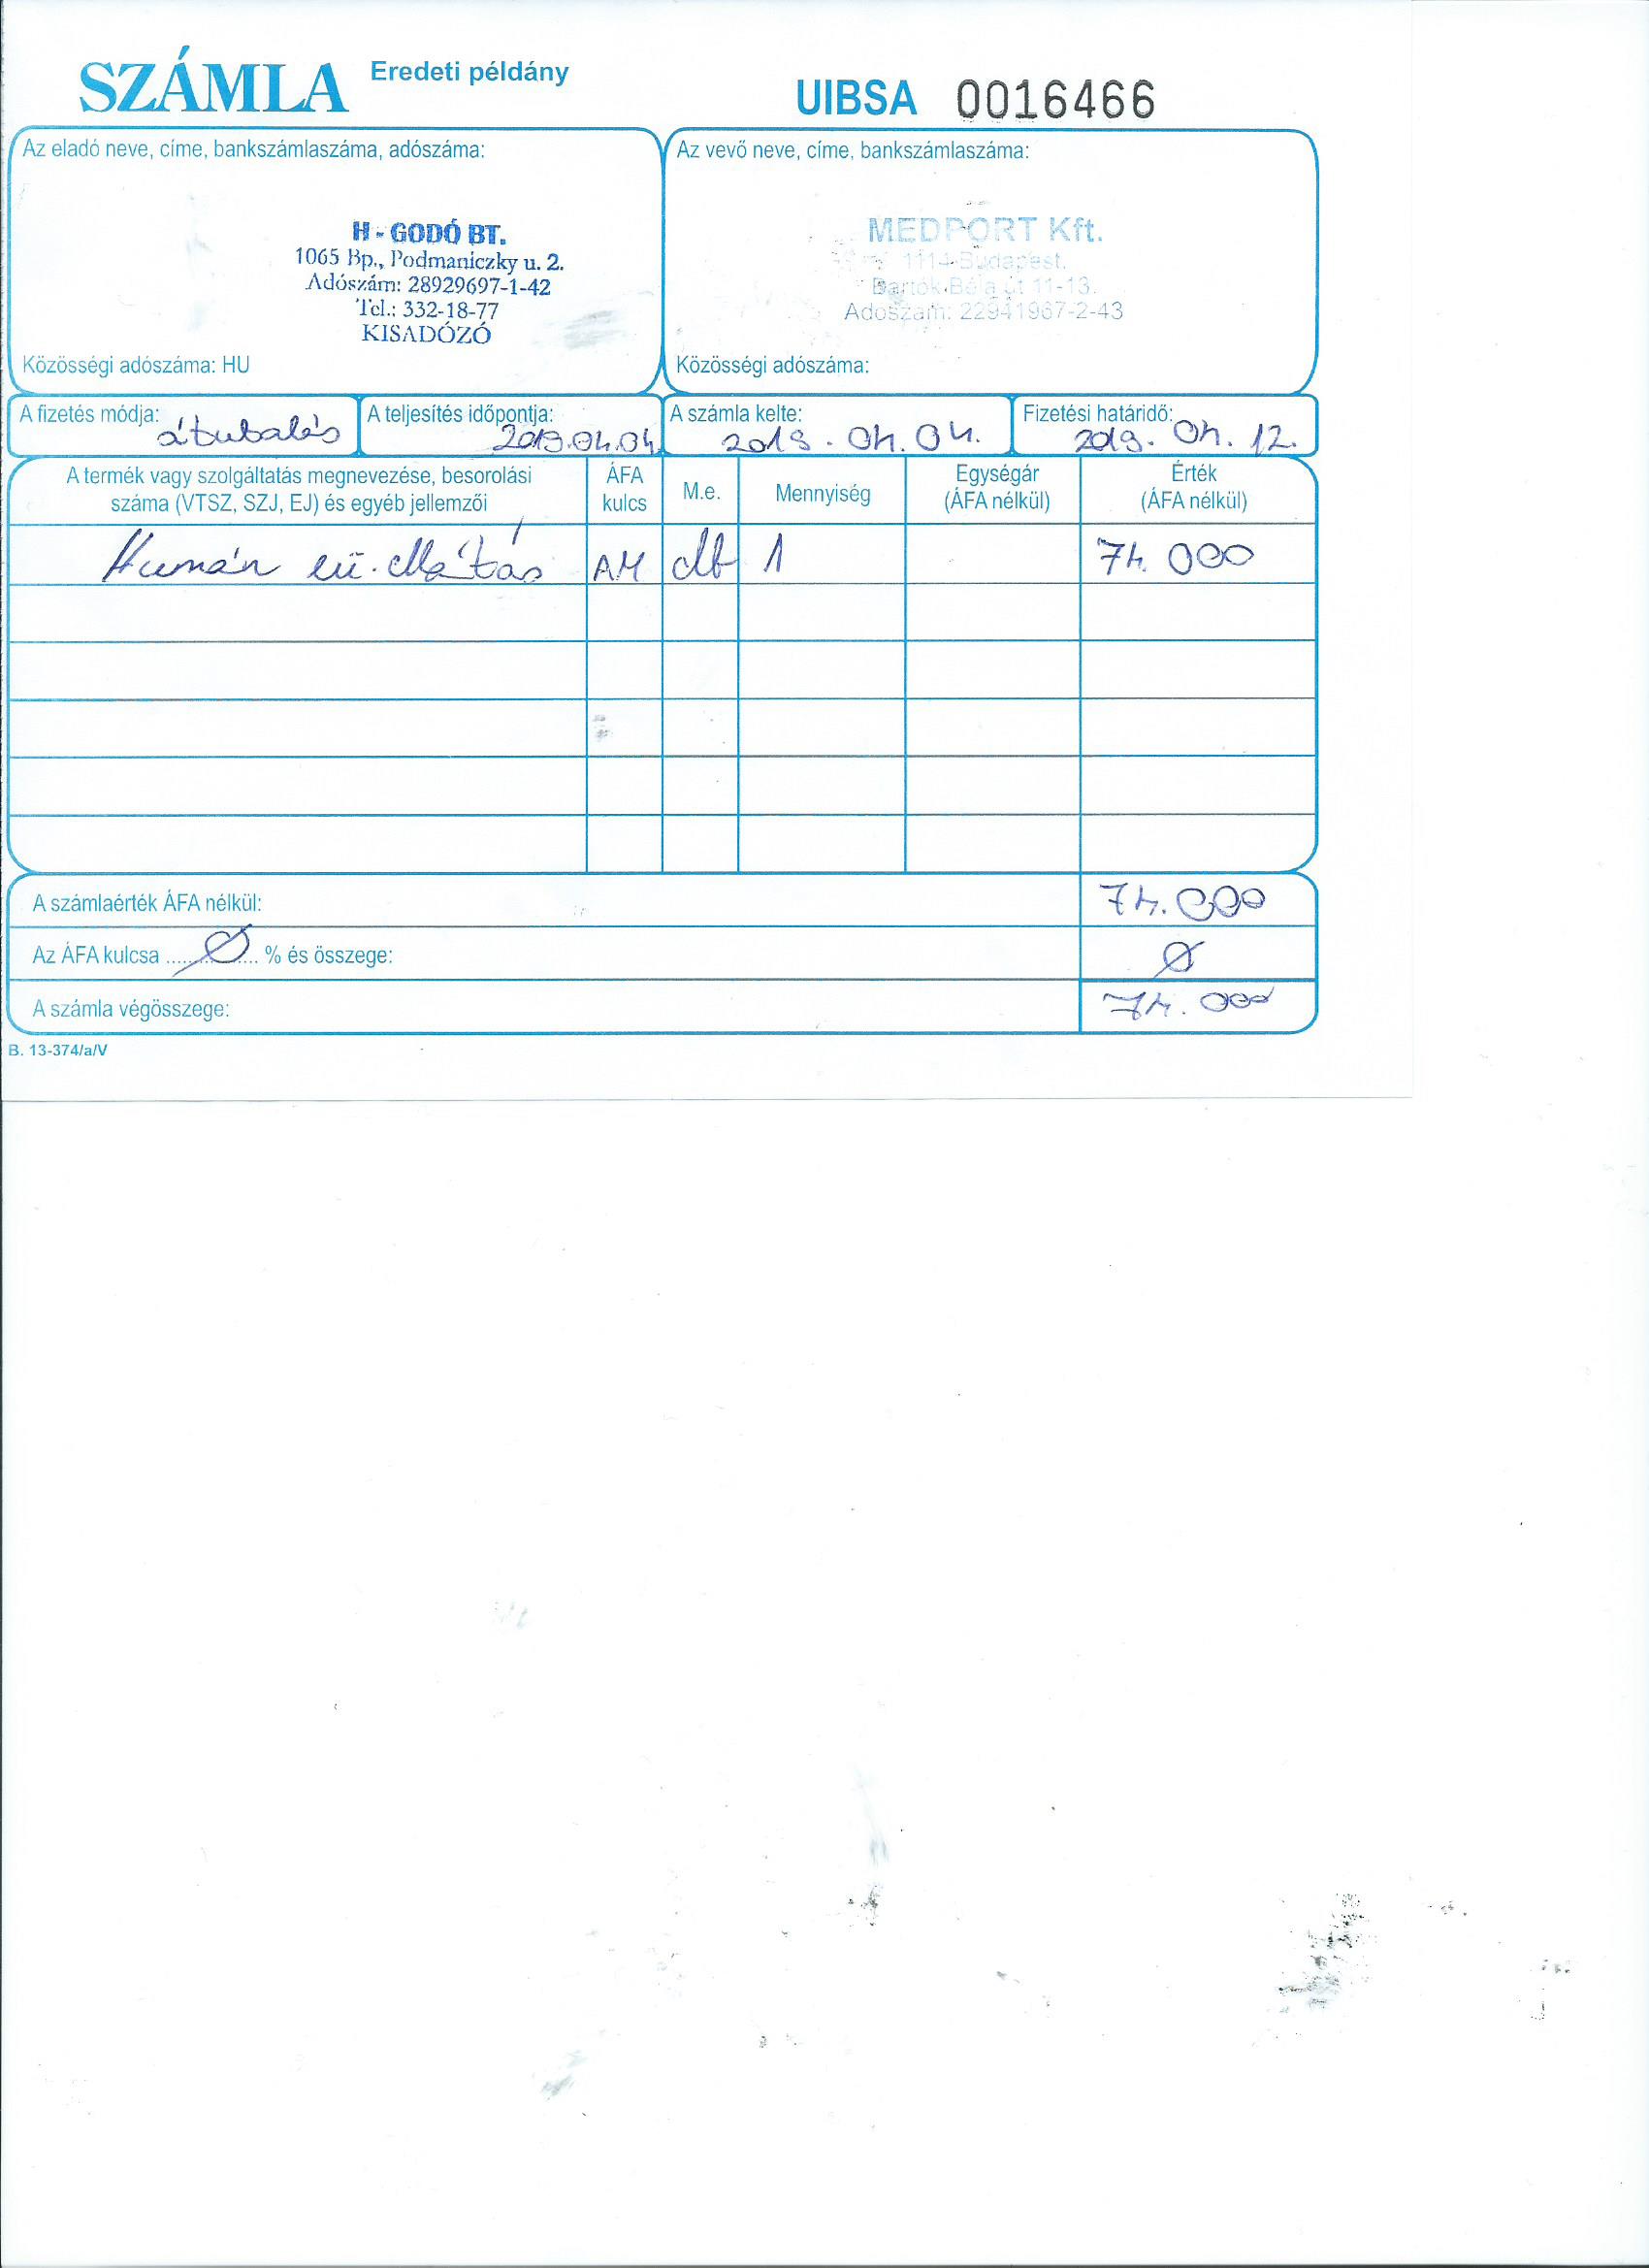 SZÁMLA Eredeti példány
UIBSA 0016466
Az eladó neve, címe, bankszámlaszáma, adószáma:
H - GODÓ BT.
1065 Bp., Podmaniczky u. 2.
Adószám: 28929697-1-42
Tel.: 332-18-77
KISADÓZÓ
Közösségi adószáma: HU
Az vevő neve, címe, bankszámlaszáma:
MEDPORT Kft.
1114 Budapest,
Bartók Béla út 11-13.
Adószám: 22941967-2-43
Közösségi adószáma:
A fizetés módja: átutalás
A teljesítés időpontja: 2019.04.04
A számla kelte: 2019. 04. 04.
Fizetési határidő: 2019. 04. 12.
A termék vagy szolgáltatás megnevezése, besorolási száma (VTSZ, SZJ, EJ) és egyéb jellemzői ÁFA kulcs M.e. Mennyiség Egységár (ÁFA nélkül) Érték (ÁFA nélkül)
Humán eü. ellátás AM db 1 74.000
A számlaérték ÁFA nélkül: 74.000
Az ÁFA kulcsa ....Ø.... % és összege: Ø
A számla végösszege: 74.000
B. 13-374/a/V